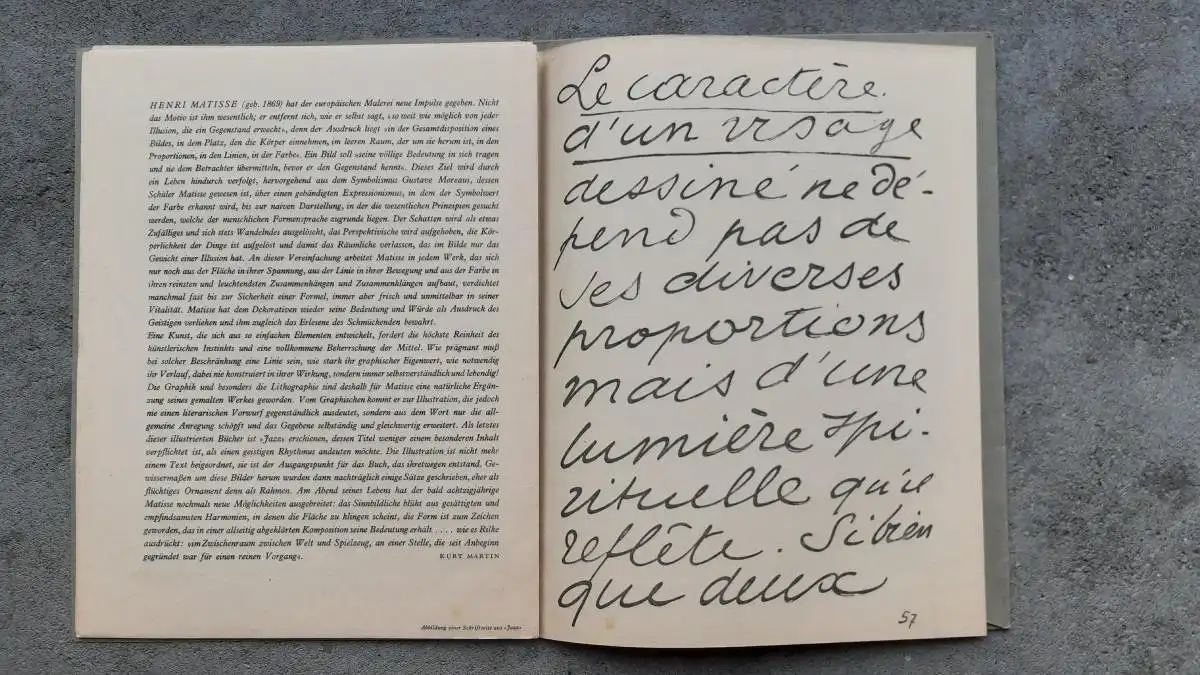 HENRI MATISSE (geb. 1869) hat der europäischen Malerei neue Impulse gegeben. Nicht
das Motiv ist ihm wesentlich; er entfernt sich, wie er selbst sagt, »so weit wie möglich von jeder
Illusion, die ein Gegenstand erweckt«, denn der Ausdruck liegt »in der Gesamtdisposition eines
Bildes, in dem Platz, den die Körper einnehmen, im leeren Raum, der um sie herum ist, in den
Proportionen, in den Linien, in der Farbe«. Ein Bild soll »seine völlige Bedeutung in sich tragen
und sie dem Betrachter übermitteln, bevor er den Gegenstand kennt«. Dieses Ziel wird durch
ein Leben hindurch verfolgt, hervorgehend aus dem Symbolismus Gustave Moreaus, dessen
Schüler Matisse gewesen ist, über einen gebändigten Expressionismus, in dem der Symbolwert
der Farbe erkannt wird, bis zur naiven Darstellung, in der die wesentlichen Prinzipien gesucht
werden, welche der menschlichen Formensprache zugrunde liegen. Der Schatten wird als etwas
Zufälliges und sich stets Wandelndes ausgelöscht, das Perspektivische wird aufgehoben, die Kör-
perlichkeit der Dinge ist aufgelöst und damit das Räumliche verlassen, das im Bilde nur das
Gewicht einer Illusion hat. An dieser Vereinfachung arbeitet Matisse in jedem Werk, das sich
nur noch aus der Fläche in ihrer Spannung, aus der Linie in ihrer Bewegung und aus der Farbe in
ihren reinsten und leuchtendsten Zusammenhängen und Zusammenklängen aufbaut, verdichtet
manchmal fast bis zur Sicherheit einer Formel, immer aber frisch und unmittelbar in seiner
Vitalität. Matisse hat dem Dekorativen wieder seine Bedeutung und Würde als Ausdruck des
Geistigen verliehen und ihm zugleich das Erlesene des Schmückenden bewahrt.
Eine Kunst, die sich aus so einfachen Elementen entwickelt, fordert die höchste Reinheit des
künstlerischen Instinkts und eine vollkommene Beherrschung der Mittel. Wie prägnant muß
bei solcher Beschränkung eine Linie sein, wie stark ihr graphischer Eigenwert, wie notwendig
ihr Verlauf, dabei nie konstruiert in ihrer Wirkung, sondern immer selbstverständlich und lebendig!
Die Graphik und besonders die Lithographie sind deshalb für Matisse eine natürliche Ergän-
zung seines gemalten Werkes geworden. Vom Graphischen kommt er zur Illustration, die jedoch
nie einen literarischen Vorwurf gegenständlich ausdeutet, sondern aus dem Wort nur die all-
gemeine Anregung schöpft und das Gegebene selbständig und gleichwertig erweitert. Als letztes
dieser illustrierten Bücher ist »Jazz« erschienen, dessen Titel weniger einem besonderen Inhalt
verpflichtet ist, als einen geistigen Rhythmus andeuten möchte. Die Illustration ist nicht mehr
einem Text beigeordnet, sie ist der Ausgangspunkt für das Buch, das ihretwegen entstand. Ge-
wissermaßen um diese Bilder herum wurden dann nachträglich einige Sätze geschrieben, eher als
flüchtiges Ornament denn als Rahmen. Am Abend seines Lebens hat der bald achtzigjährige
Matisse nochmals neue Möglichkeiten ausgebreitet: das Sinnbildliche blüht aus gesättigten und
empfindsamsten Harmonien, in denen die Fläche zu klingen scheint, die Form ist zum Zeichen
geworden, das in einer allseitig abgeklärten Komposition seine Bedeutung erhält . . . . wie es Rilke
ausdrückt: »im Zwischenraum zwischen Welt und Spielzeug, an einer Stelle, die seit Anbeginn
gegründet war für einen reinen Vorgang«. KURT MARTIN
Abbildung einer Schriftseite aus »Jazz«
Le caractère.
d'un visage
dessiné ne dé-
pend pas de
ses diverses
proportions
mais d'une
lumière spi-
rituelle qu'il
reflète. Si bien
que deux
57